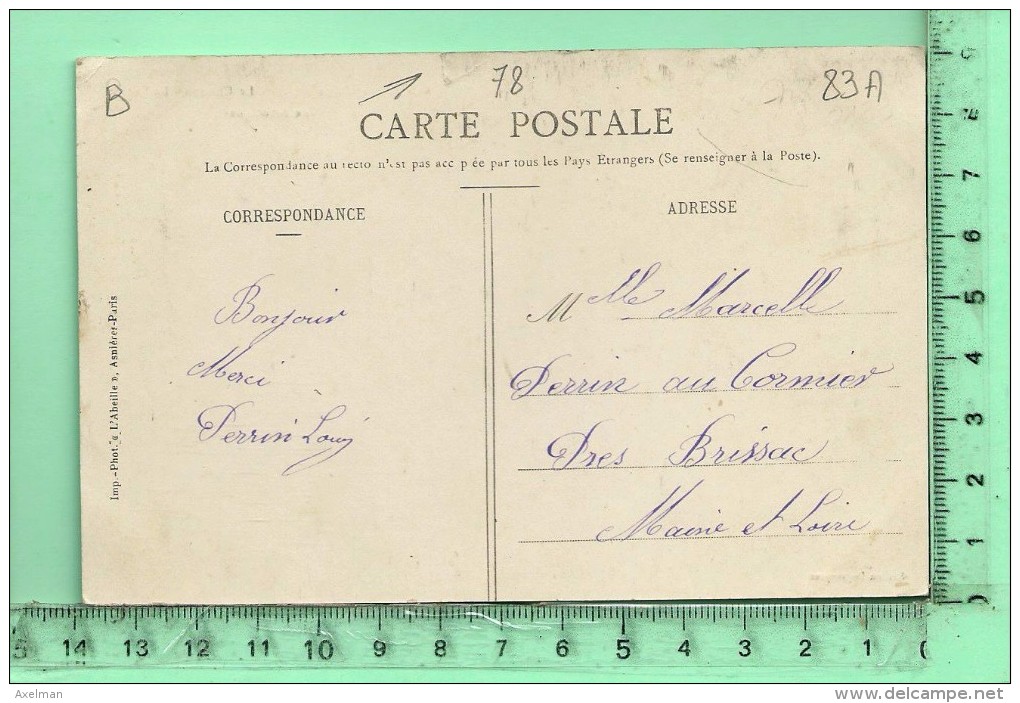 B
78
83A
CARTE POSTALE
La Correspondance au recto n'est pas acc p ée par tous les Pays Etrangers (Se renseigner à la Poste).
CORRESPONDANCE
ADRESSE
Bonjour
Merci
Perrin Louis
M Mlle Marcelle
Perrin au Cormier
Pres Brissac
Maine et Loire
Imp.-Phot. « L'Abeille », Asnières-Paris
8
7
6
5
4
3
2
1
0
15 14 13 12 11 10 9 8 7 6 5 4 3 2 1 0
Axelman
www.delcampe.net